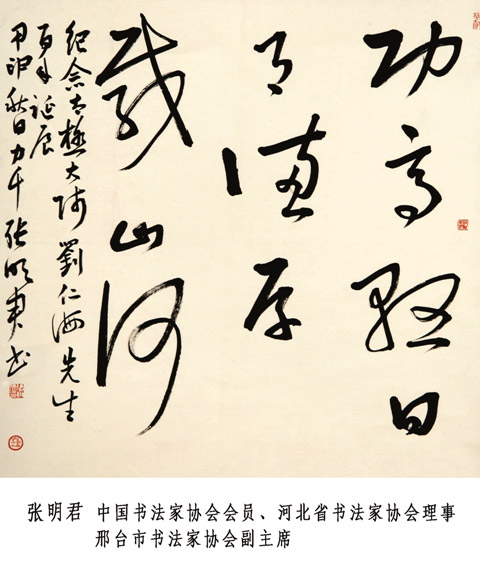 功高懸日
月德厚
載山河
紀念太極大師劉仁海先生
百年誕辰
秋日力千張明君书
张明君 中国书法家协会会员、河北省书法家协会理事
邢台市书法家协会副主席